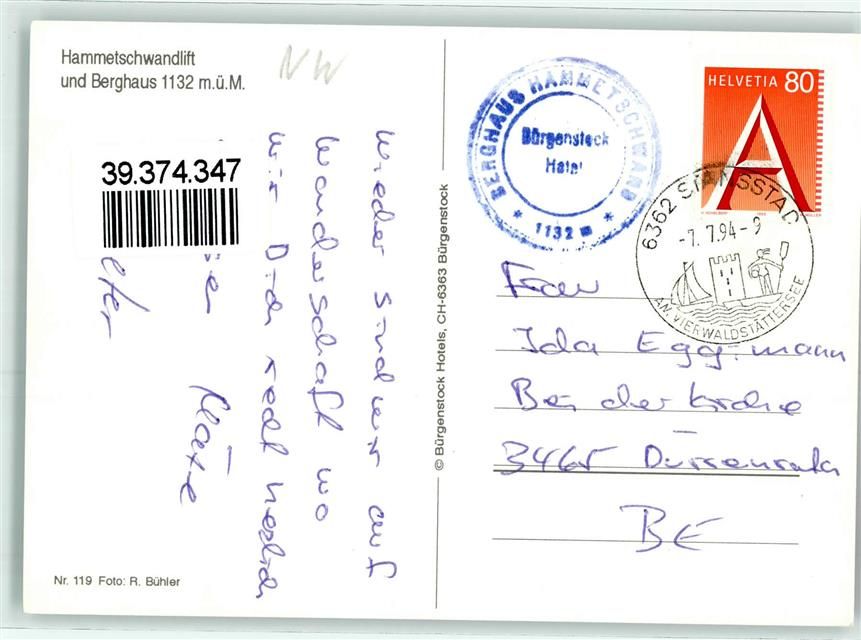 Hammetschwandlift
und Berghaus 1132 m.ü.M.
NW
39.374.347
Wieder sind wir auf
Wanderschaft wo
wir Dich recht herzlich
Käte
Nr. 119 Foto: R. Bühler
© Bürgenstock Hotels, CH-6363 Bürgenstock
BERGHAUS HAMMETSCHWAND
Bürgenstock
* 1132 m *
HELVETIA 80
A
6362 STANSSTAD
-7.7.94-9
AM VIERWALDSTÄTTERSEE
Frau
Ida Eggimann
Bei der Kirche
3465 Dürrenroth
BE